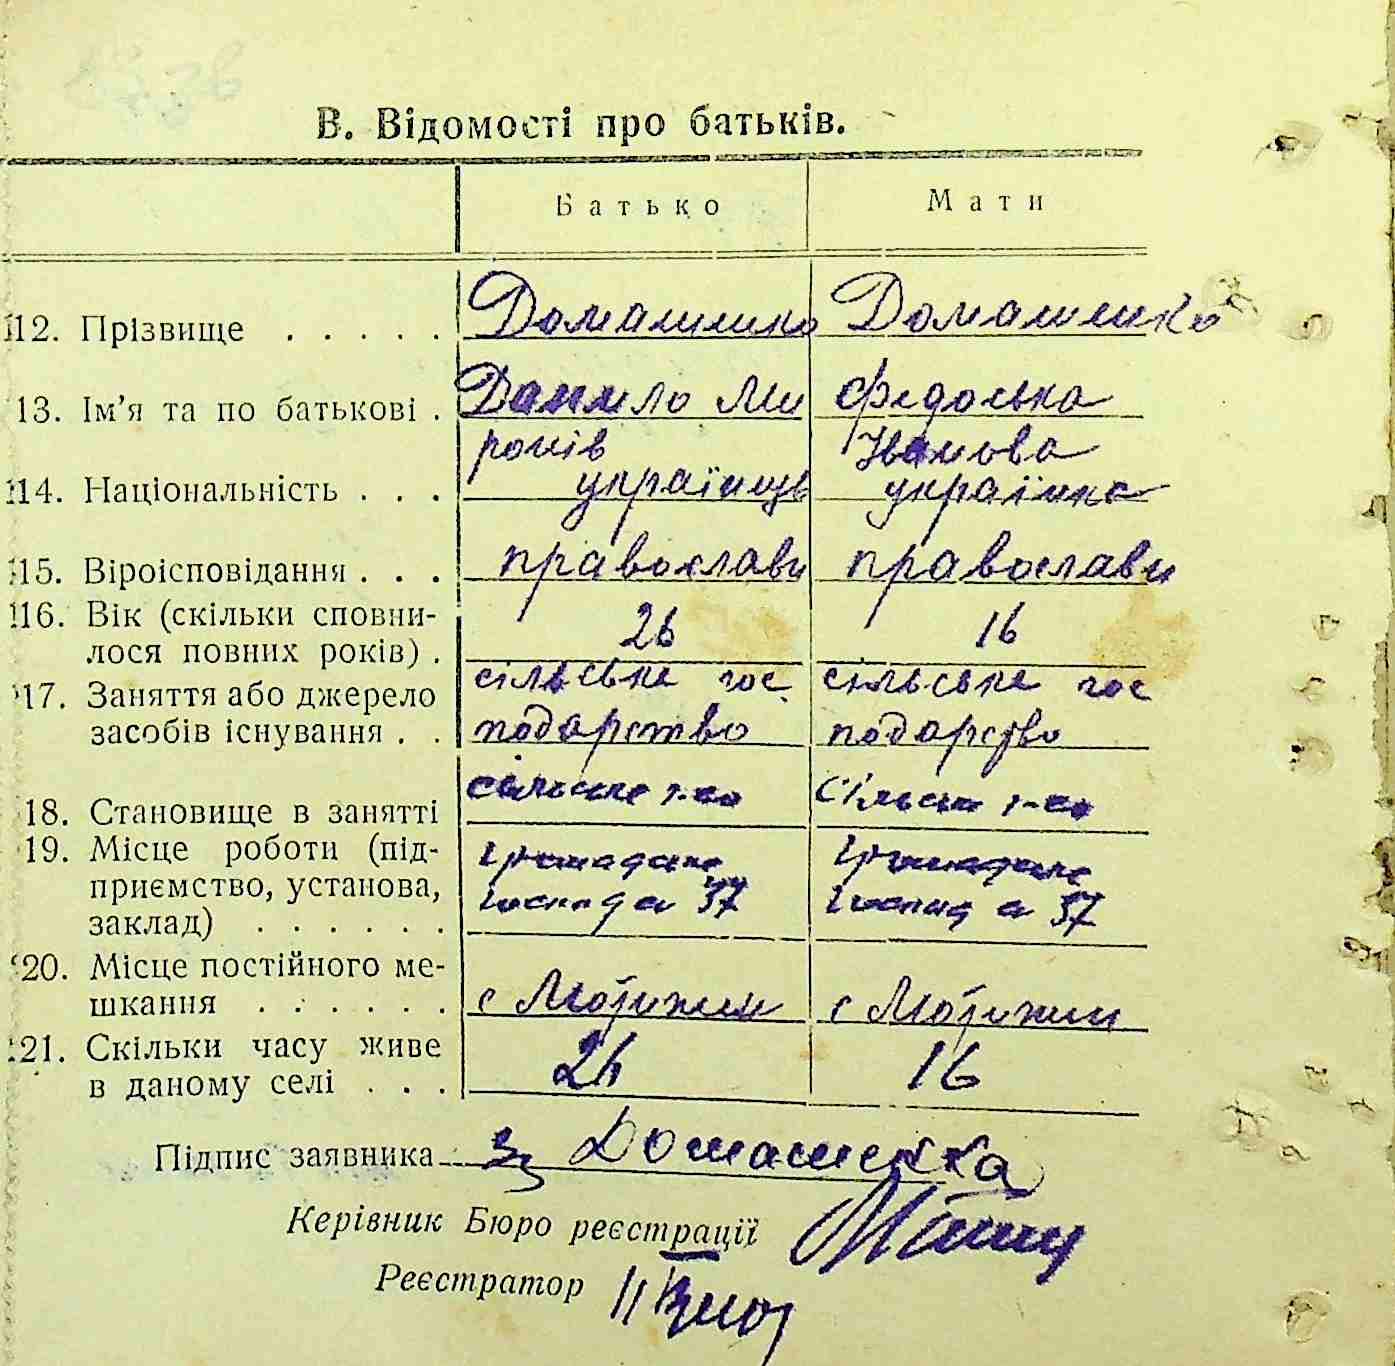 В. Відомості про батьків.
Батько Мати
12. Прізвище . . . . . Домашенко Домашенко
13. Ім’я та по батькові . Данило Ми Федоська
років Іванова
14. Національність . . . українець українка
15. Віроісповідання . . . православн православн
16. Вік (скільки сповни- 26 16
лося повних років) .
17. Заняття або джерело сільське гос сільське гос
засобів існування . . подарство подарство
18. Становище в занятті сільське г-во сільске г-во
19. Місце роботи (під- громадське громадське
приємство, установа, 37 37
заклад) . . . . . .
20. Місце постійного ме-
шкання . . . . . . с Мотижин с Мотижин
21. Скільки часу живе 26 16
в даному селі . . .
Підпис заявника Домашенка
Керівник Бюро реєстрації
Реєстратор